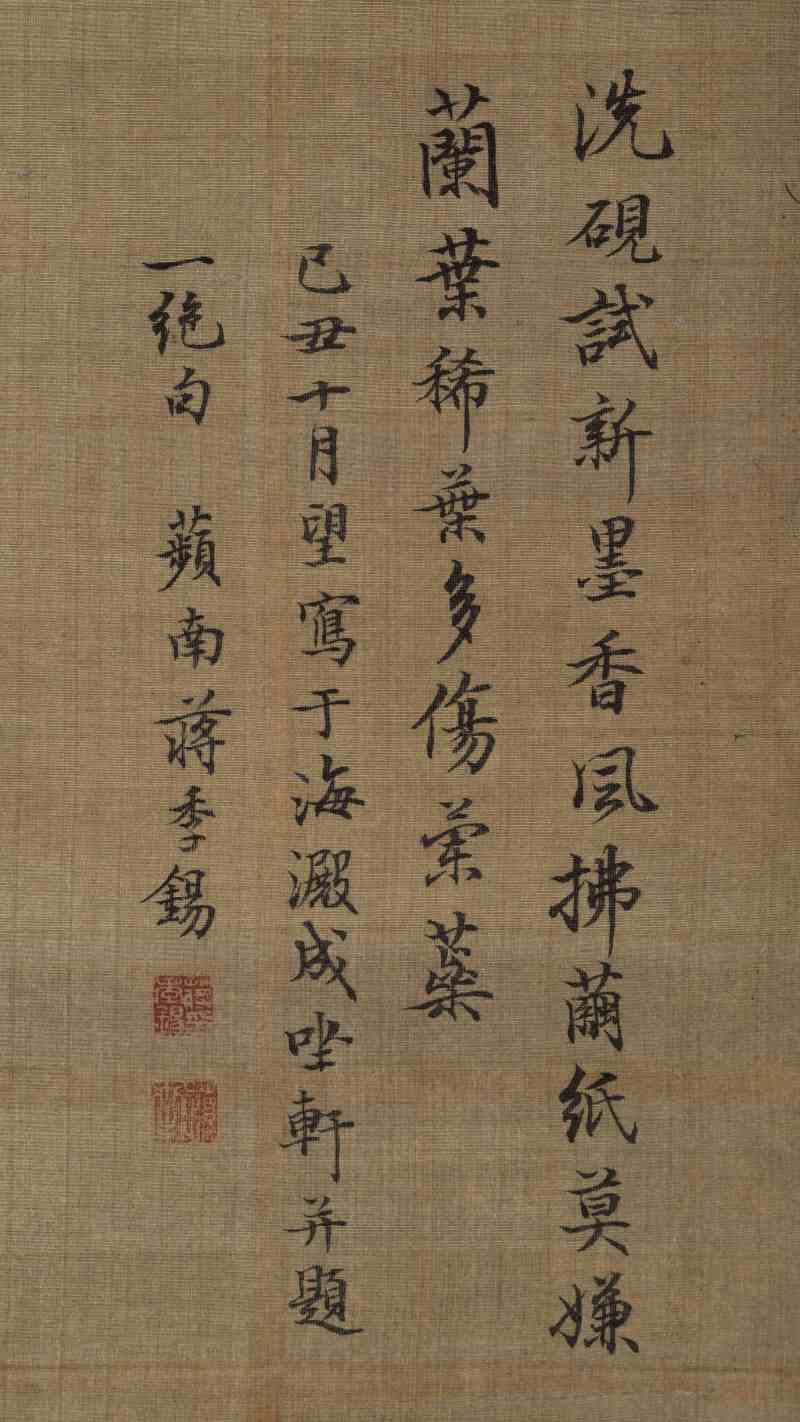 洗硯試新墨香風拂繭紙莫嫌
蘭葉稀葉多傷蘭蕊
己丑十月望寫于海澱成坐軒并題
一絶句 蘋南蔣季錫